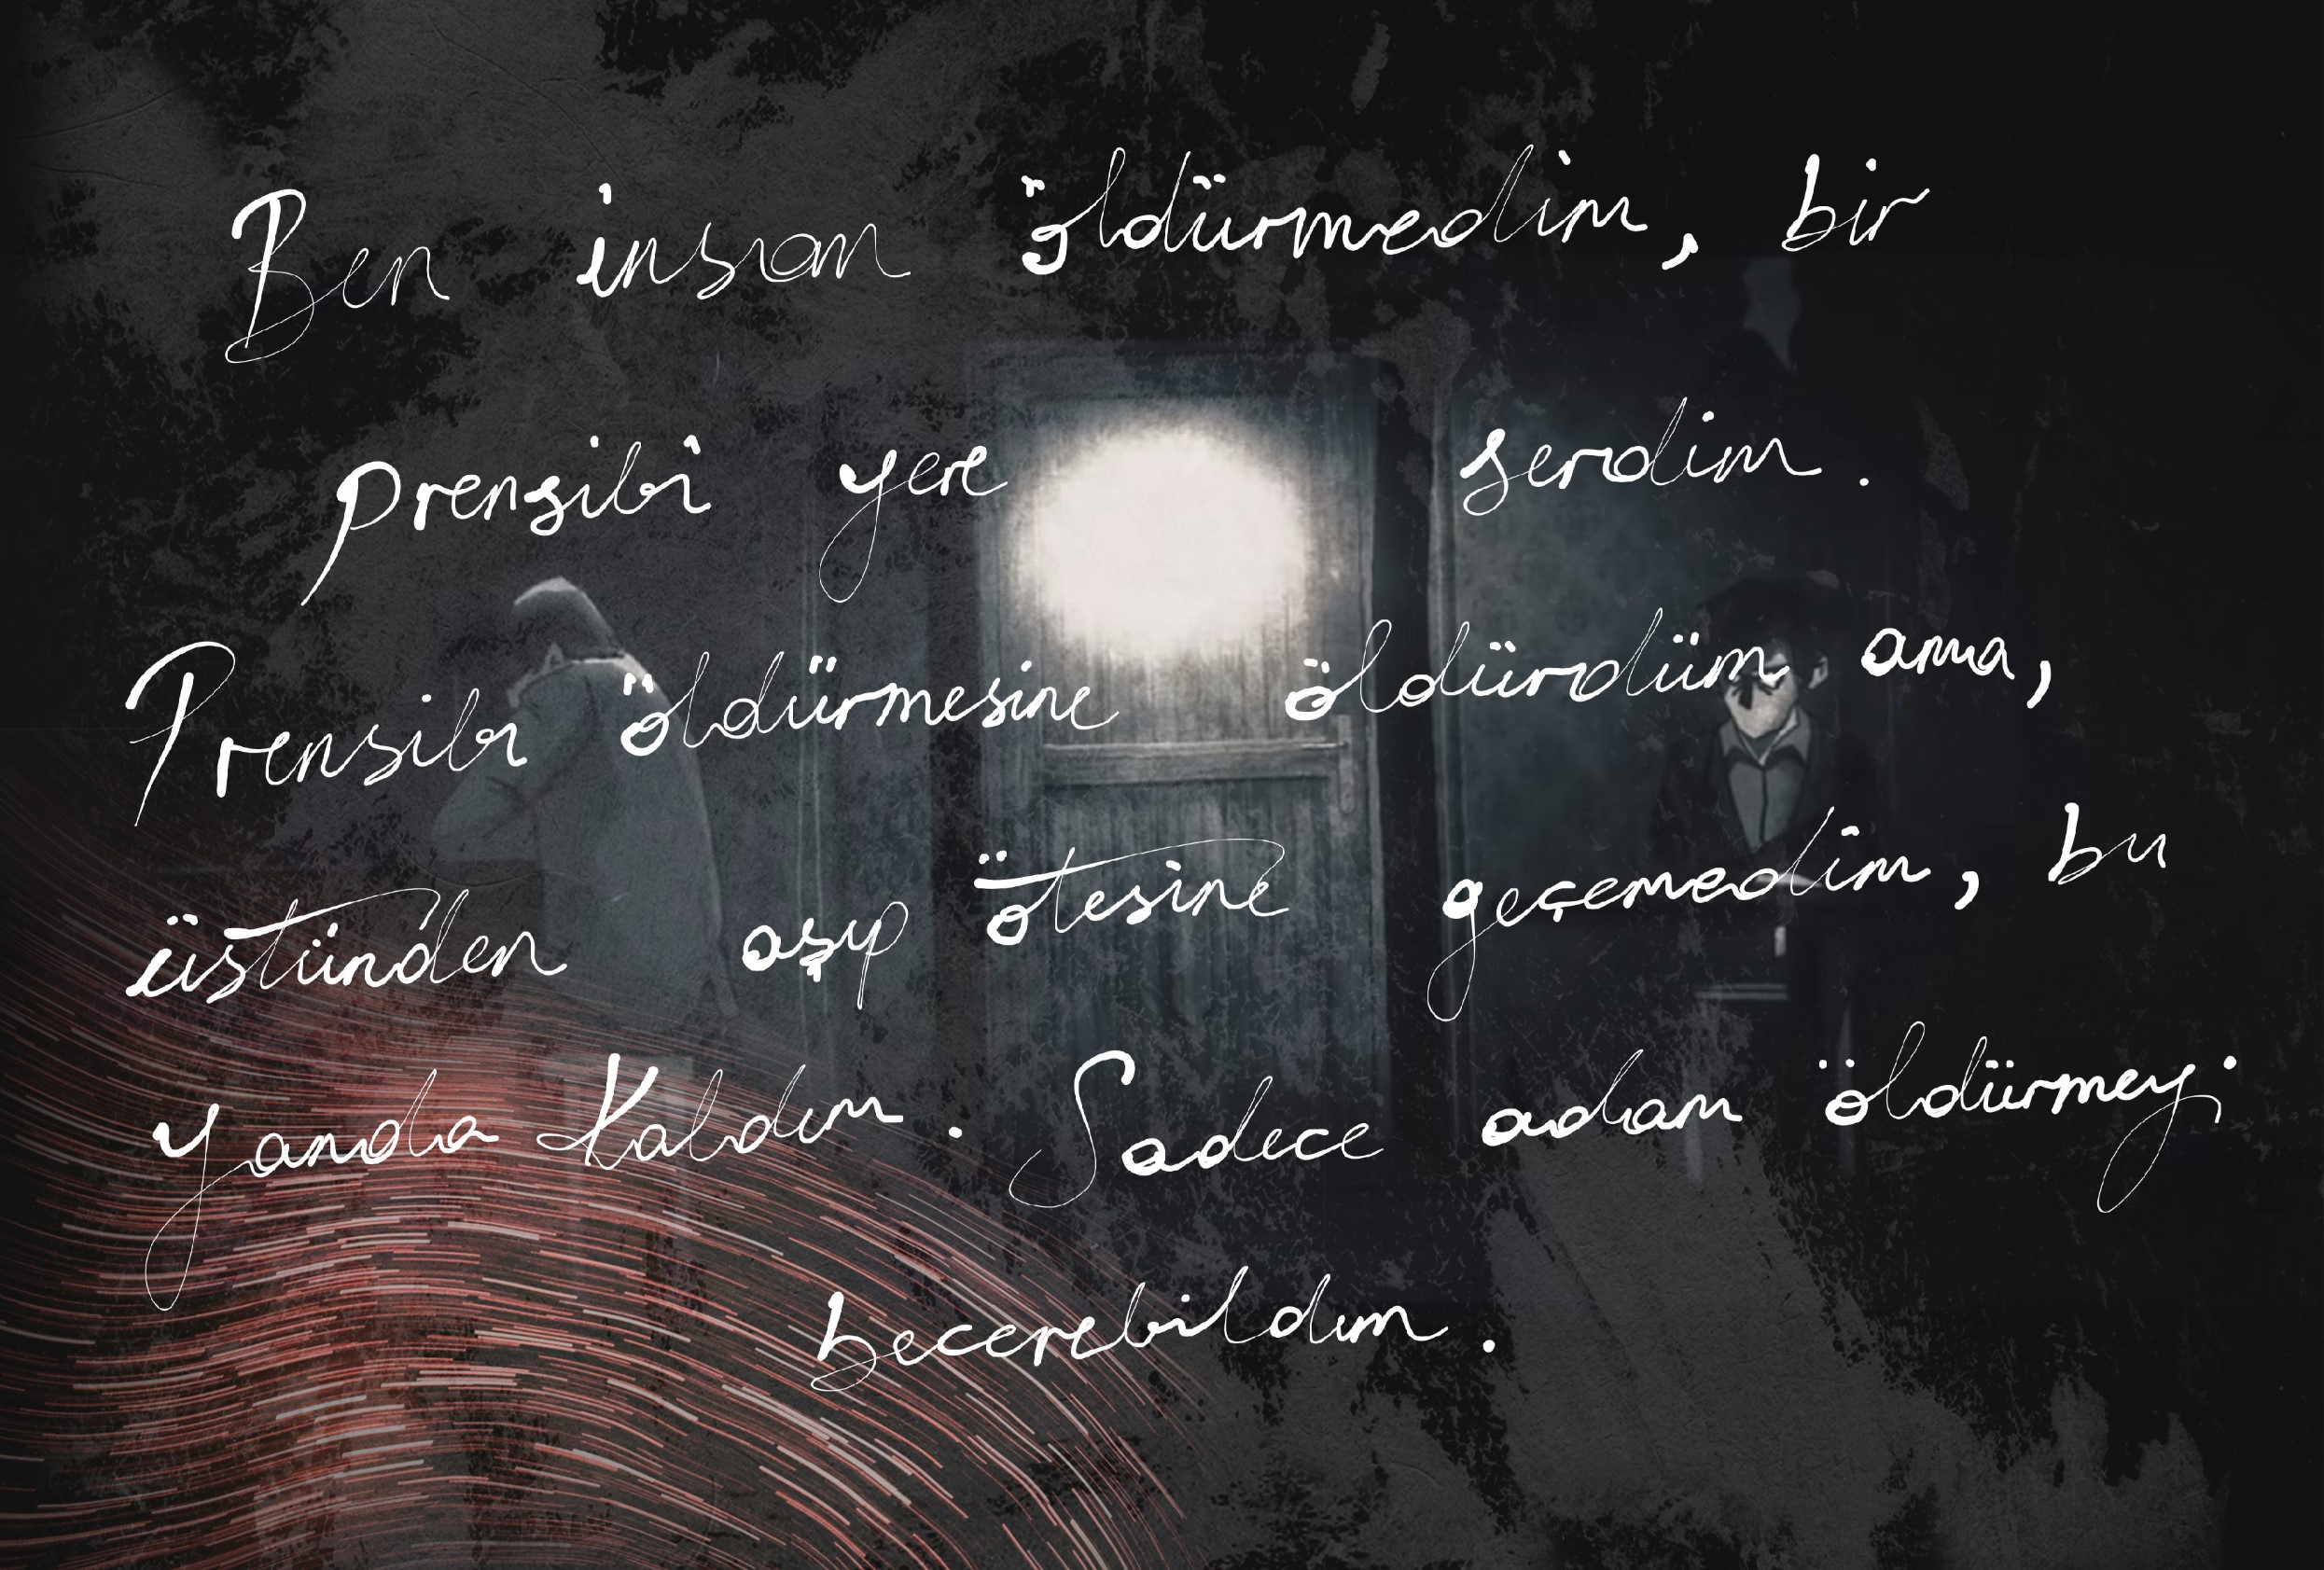 Ben insan öldürmedim, bir
prensibi yere serdim.
Prensibi öldürmesine öldürdüm ama,
üstünden aşıp ötesine geçemedim, bu
yanda kaldım. Sadece adam öldürmeyi
becerebildim.